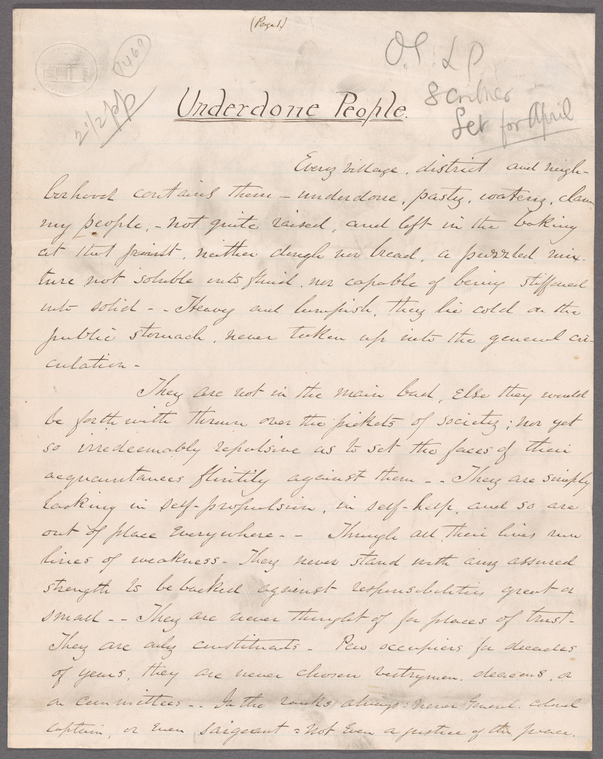 (Page 1)
1469
O.C. & P.
Scribner
Set for April
2 1/2 pp
Underdone People.
Every village, district and neigh-
borhood contains them - underdone, pasty, clam
my people, - not quite raised, and left in the baking
at that point, neither dough nor bread, a puzzled mix-
ture not soluble into fluid, nor capable of being stiffened
into solid - - Heavy and lumpish, they lie cold on the
public stomach, never taken up into the general cir-
culation -
They are not in the main bad, else they would
be forthwith thrown over the pickets of society; nor yet
so irredeemably repulsive as to set the faces of their
acquaintances flintily against them - - They are simply
lacking in self-propulsion, in self-help, and so are
out of place everywhere - - Through all their lives run
lines of weakness - They never stand with any assured
strength to be backed against responsibilities great or
small - - They are never thought of for places of trust -
They are only constituents - Pew occupiers for decades
of years, they are never chosen vestrymen, deacons, or
on committees - - In the ranks always: never General,
captain, or even sargeant = Not even a justice of the peace.